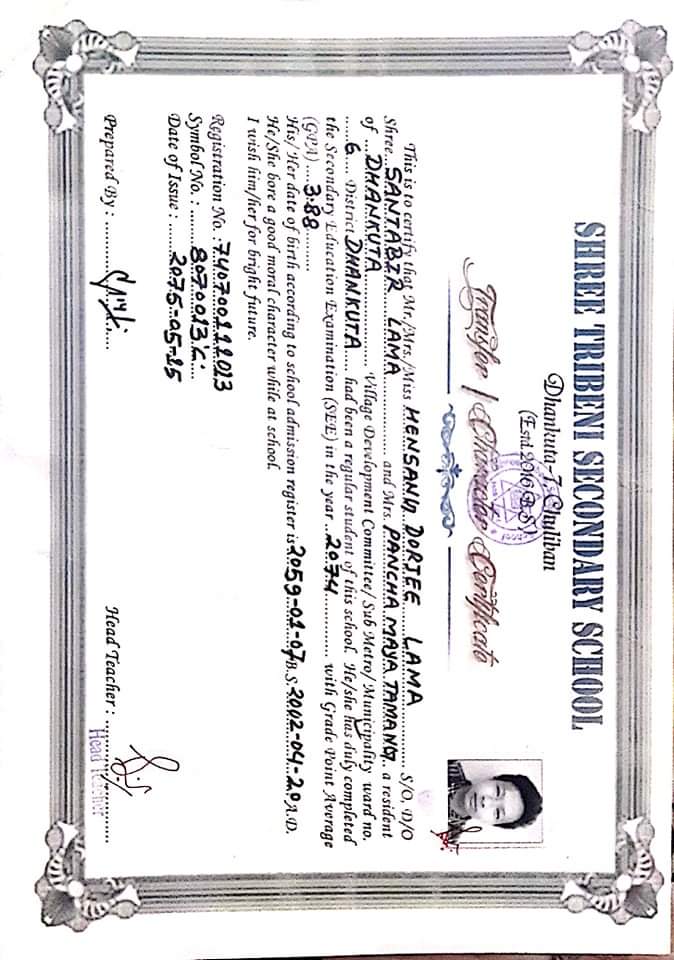 SHREE TRIBENI SECONDARY SCHOOL
Dhankuta-7 Chuliban
(Estd 2016 B.S)
Transfer / Character Certificate
This is to certify that Mr./Mrs./Miss HENSANG DORJEE LAMA S/O, D/O
Shree SANTABIR LAMA and Mrs. PANCHA MAYA TAMANG, a resident
of DHANKUTA Village Development Committee/ Sub Metro/ Municipality ward no.
6 District DHANKUTA had been a regular student of this school. He/she has duly completed
the Secondary Education Examination (SEE) in the year 2074 with Grade Point Average
(GPA) 3.88
His/ Her date of birth according to school admission register is 2059-01-07 B.S. 2002-04-20 A.D.
He/She bore a good moral character while at school.
I wish him/her for bright future.
Registration No. : 740700111013
Symbol No. :
Date of Issue : 2075-05-15
Prepared By :
Head Teacher :
Head Teacher